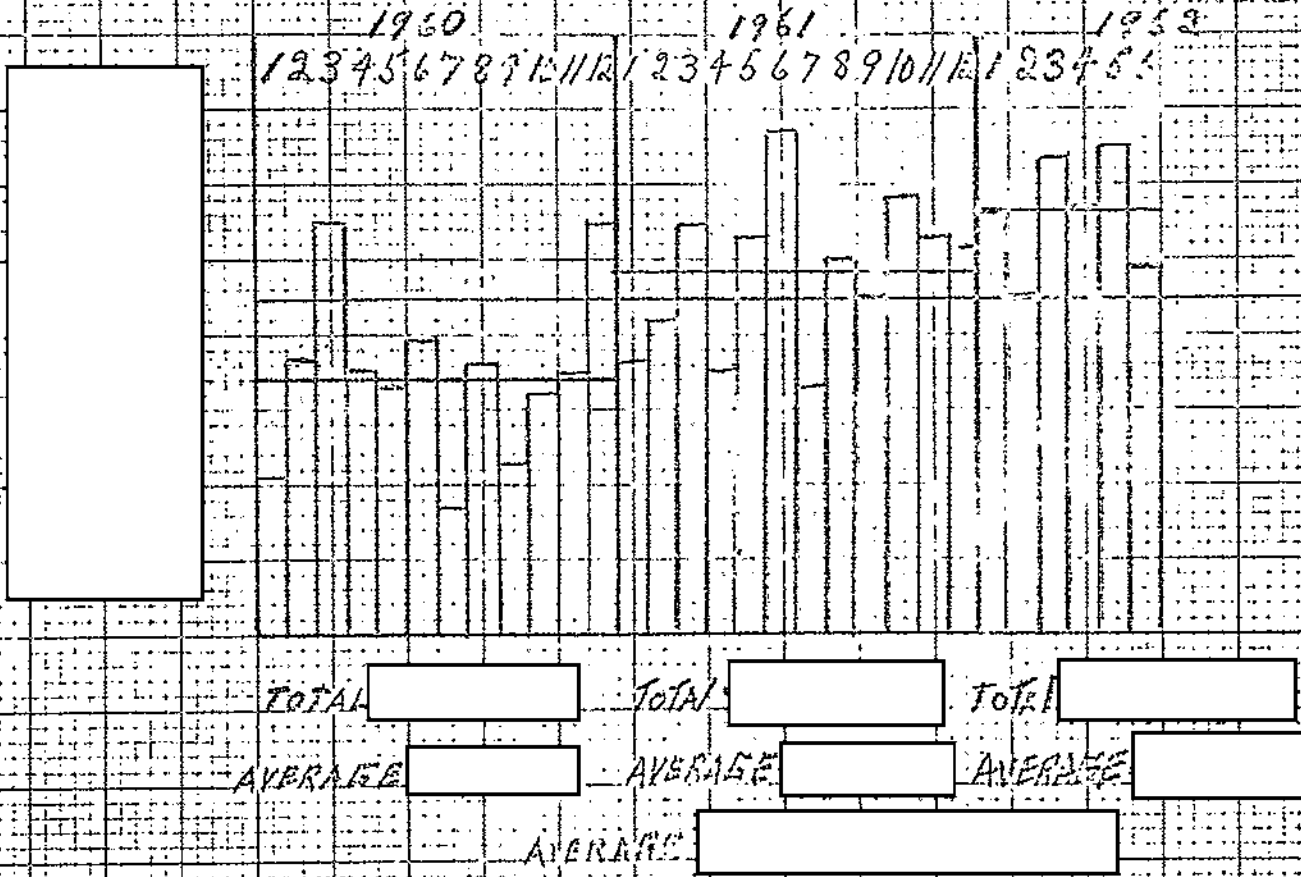 1960 1961 1962
1 2 3 4 5 6 7 8 9 10 11 12 1 2 3 4 5 6 7 8 9 10 11 12 1 2 3 4 5
TOTAL TOTAL TOTAL
AVERAGE AVERAGE AVERAGE
AVERAGE